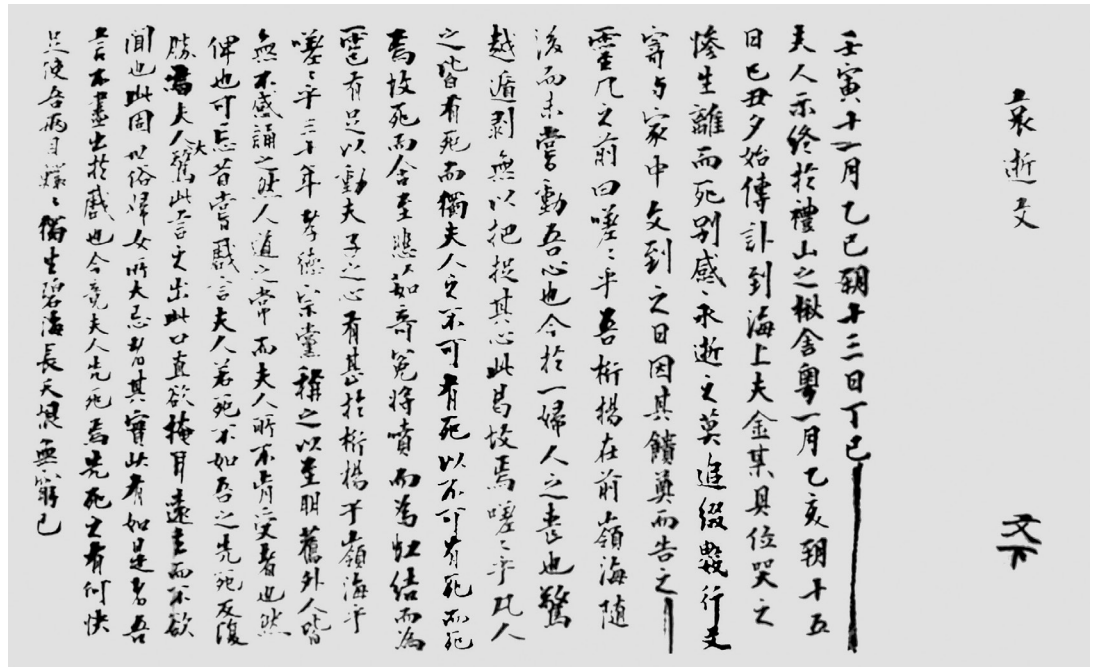 哀逝文
文下
壬寅十一月乙巳朔十三日丁巳
夫人示終於禮山之楸舍粵一月乙亥朔十五
日己丑夕始傳訃到海上夫金某具位哭之
慘生離而死別感永逝之莫追綴數行文
寄与家中文到之日因其饋奠而告之
靈几之前曰嗟嗟乎吾桁楊在前嶺海隨
後而未嘗動吾心也今於一婦人之喪也驚
越遁剥無以把捉其心此曷故焉嗟嗟乎凡人
之皆有死而獨夫人之不可有死以不可有死而死
焉故死而含至悲茹奇冤將噴而爲虹結而爲
雹有足以動夫子之心有甚於桁楊乎嶺海乎
嗟嗟乎三十年孝德宗黨稱之以至朋舊外人皆
無不感誦之然人道之常而夫人所不肯受者也然
俾也可忘昔嘗戲言夫人若死不如吾之先死反復
勝焉夫人大驚此言之出此口直欲掩耳遠去而不欲
聞也此固世俗婦女所大忌者其實狀有如是者吾
言不盡出於戲也今竟夫人先死焉先死之有何快
足使吾兩目鰥鰥獨生碧海長天恨無窮已